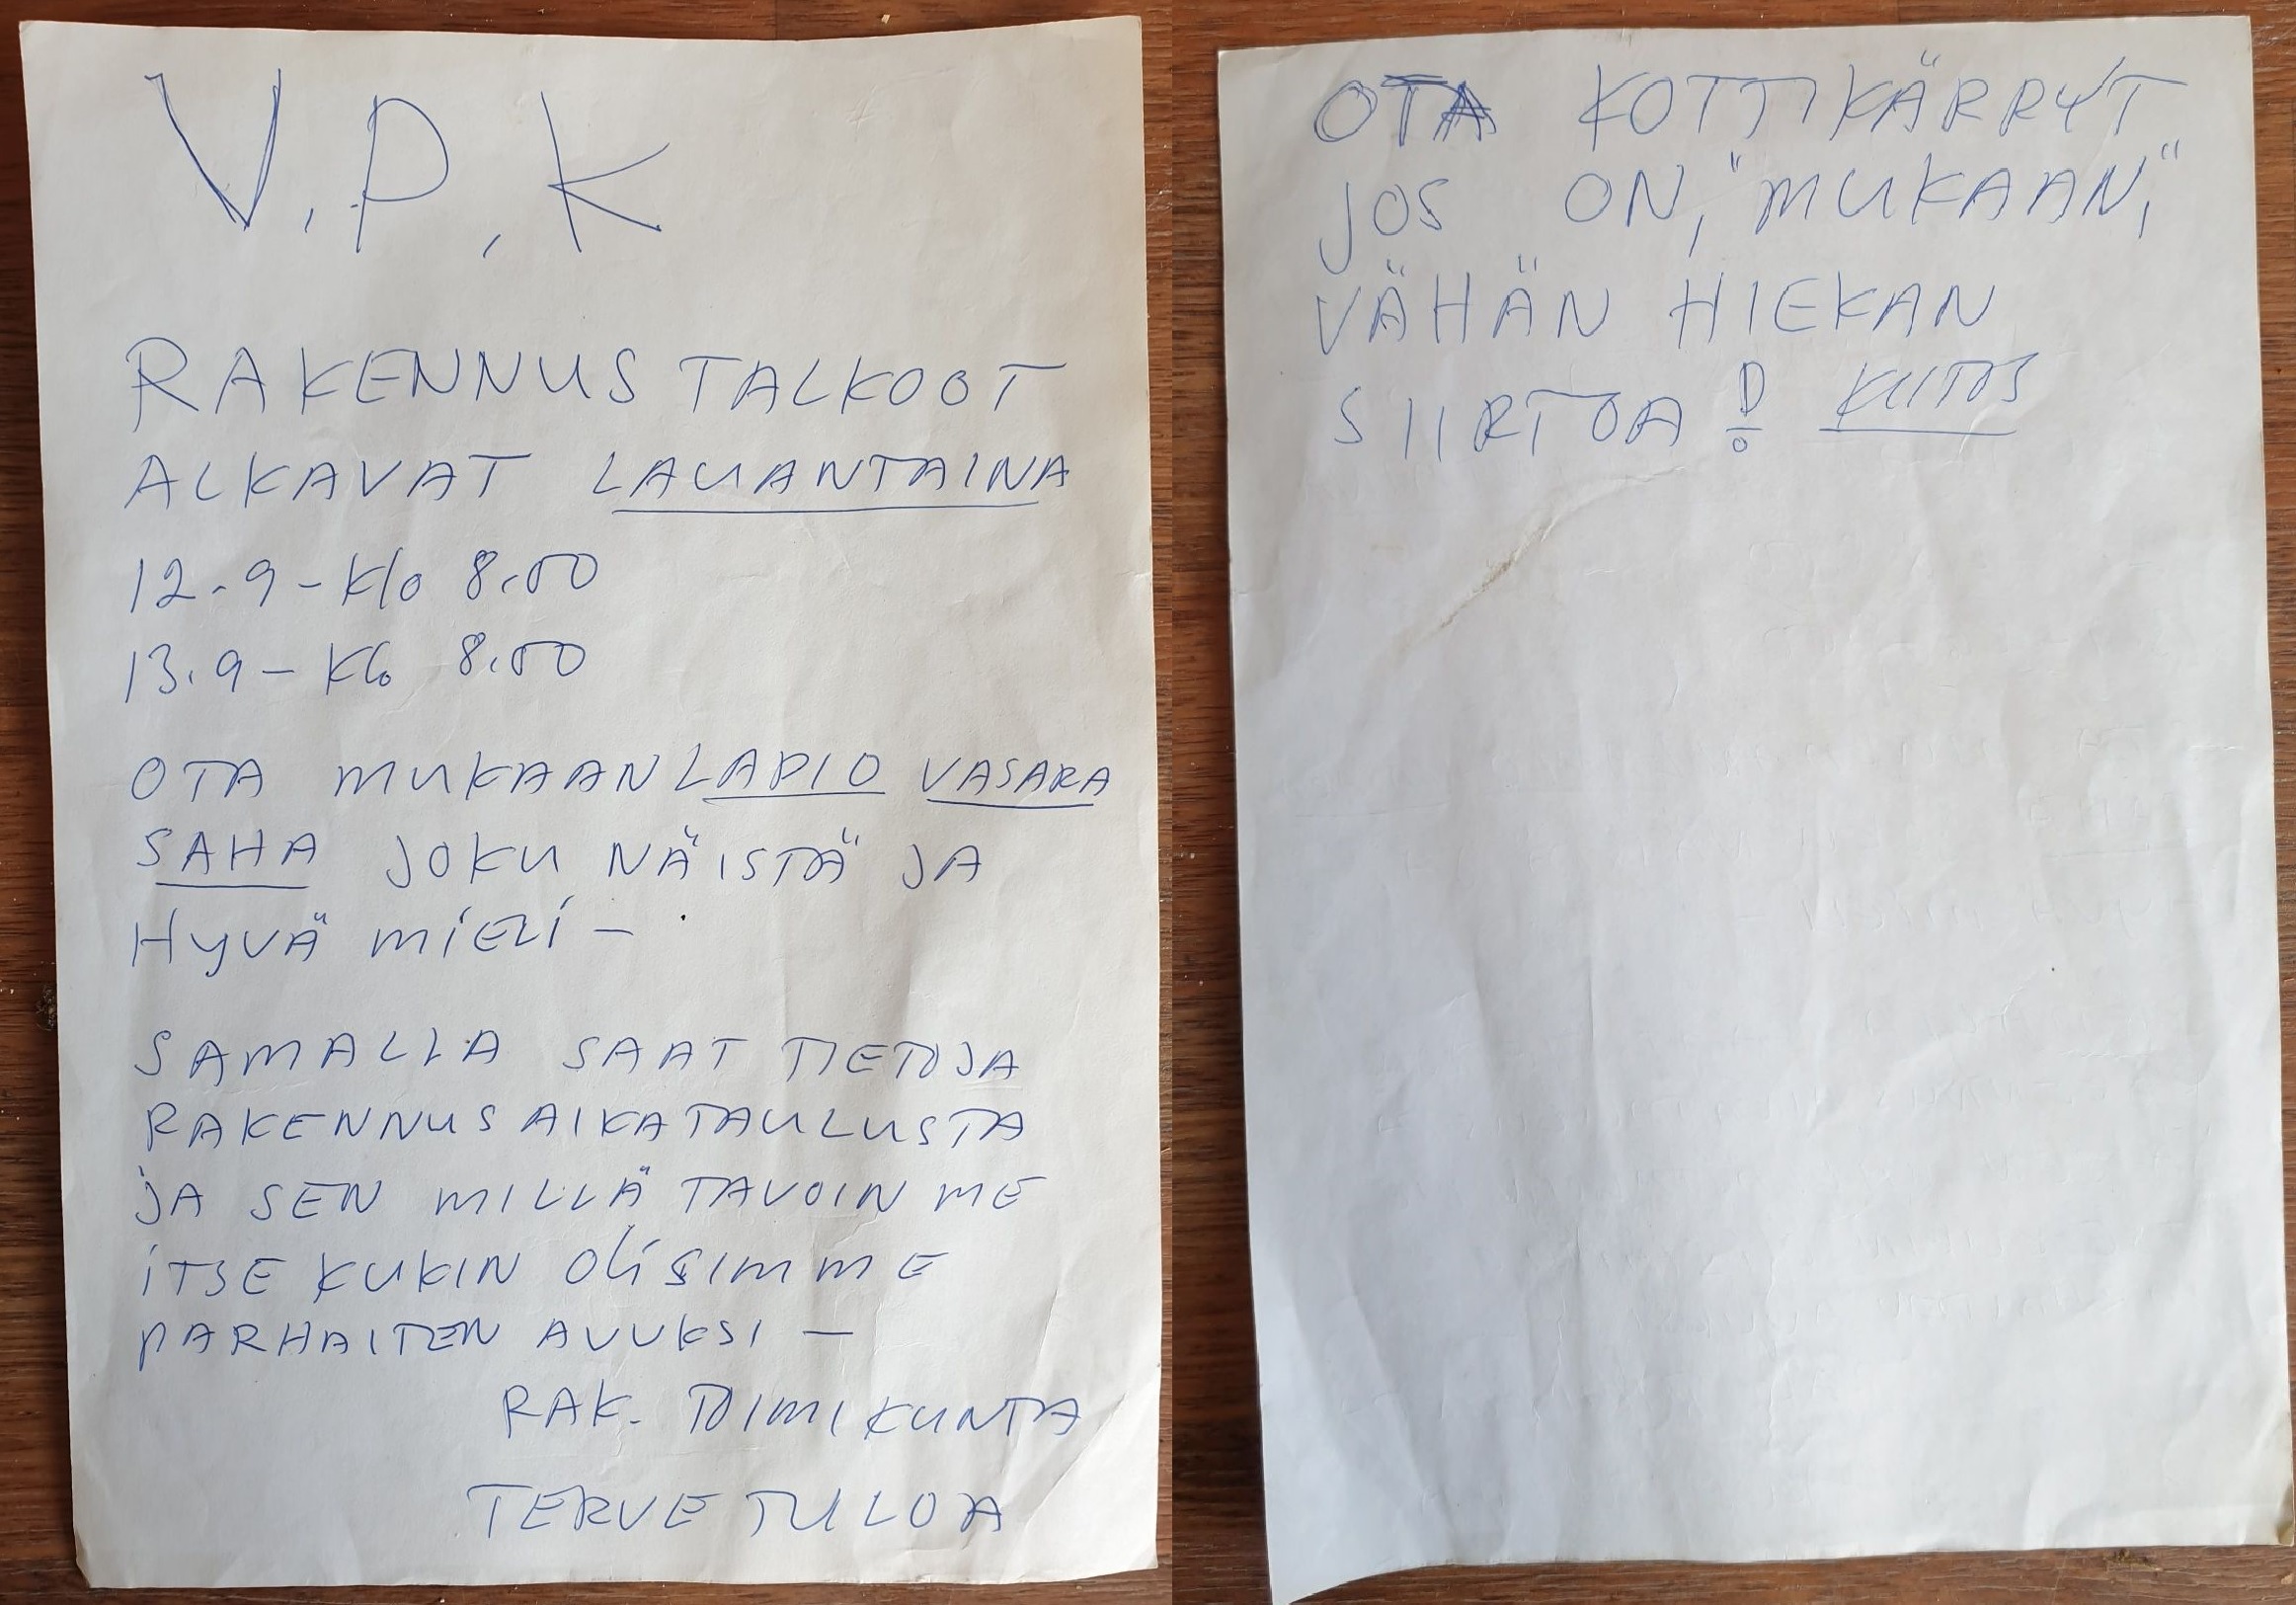 V.P.K
RAKENNUSTALKOOT
ALKAVAT LAUANTAINA
12.9 – Klo 8.00
13.9 – Klo 8.00
OTA MUKAAN LAPIO VASARA
SAHA JOKU NÄISTÄ JA
HYVÄ MIELI –
SAMALLA SAAT TIETOJA
RAKENNUSAIKATAULUSTA
JA SEN MILLÄ TAVOIN ME
ITSE KUKIN OLISIMME
PARHAITEN AVUKSI –
RAK. TOIMIKUNTA
TERVETULOA
OTA KOTTIKÄRRYT
JOS ON, "MUKAAN,"
VÄHÄN HIEKAN
SIIRTOA! KIITOS